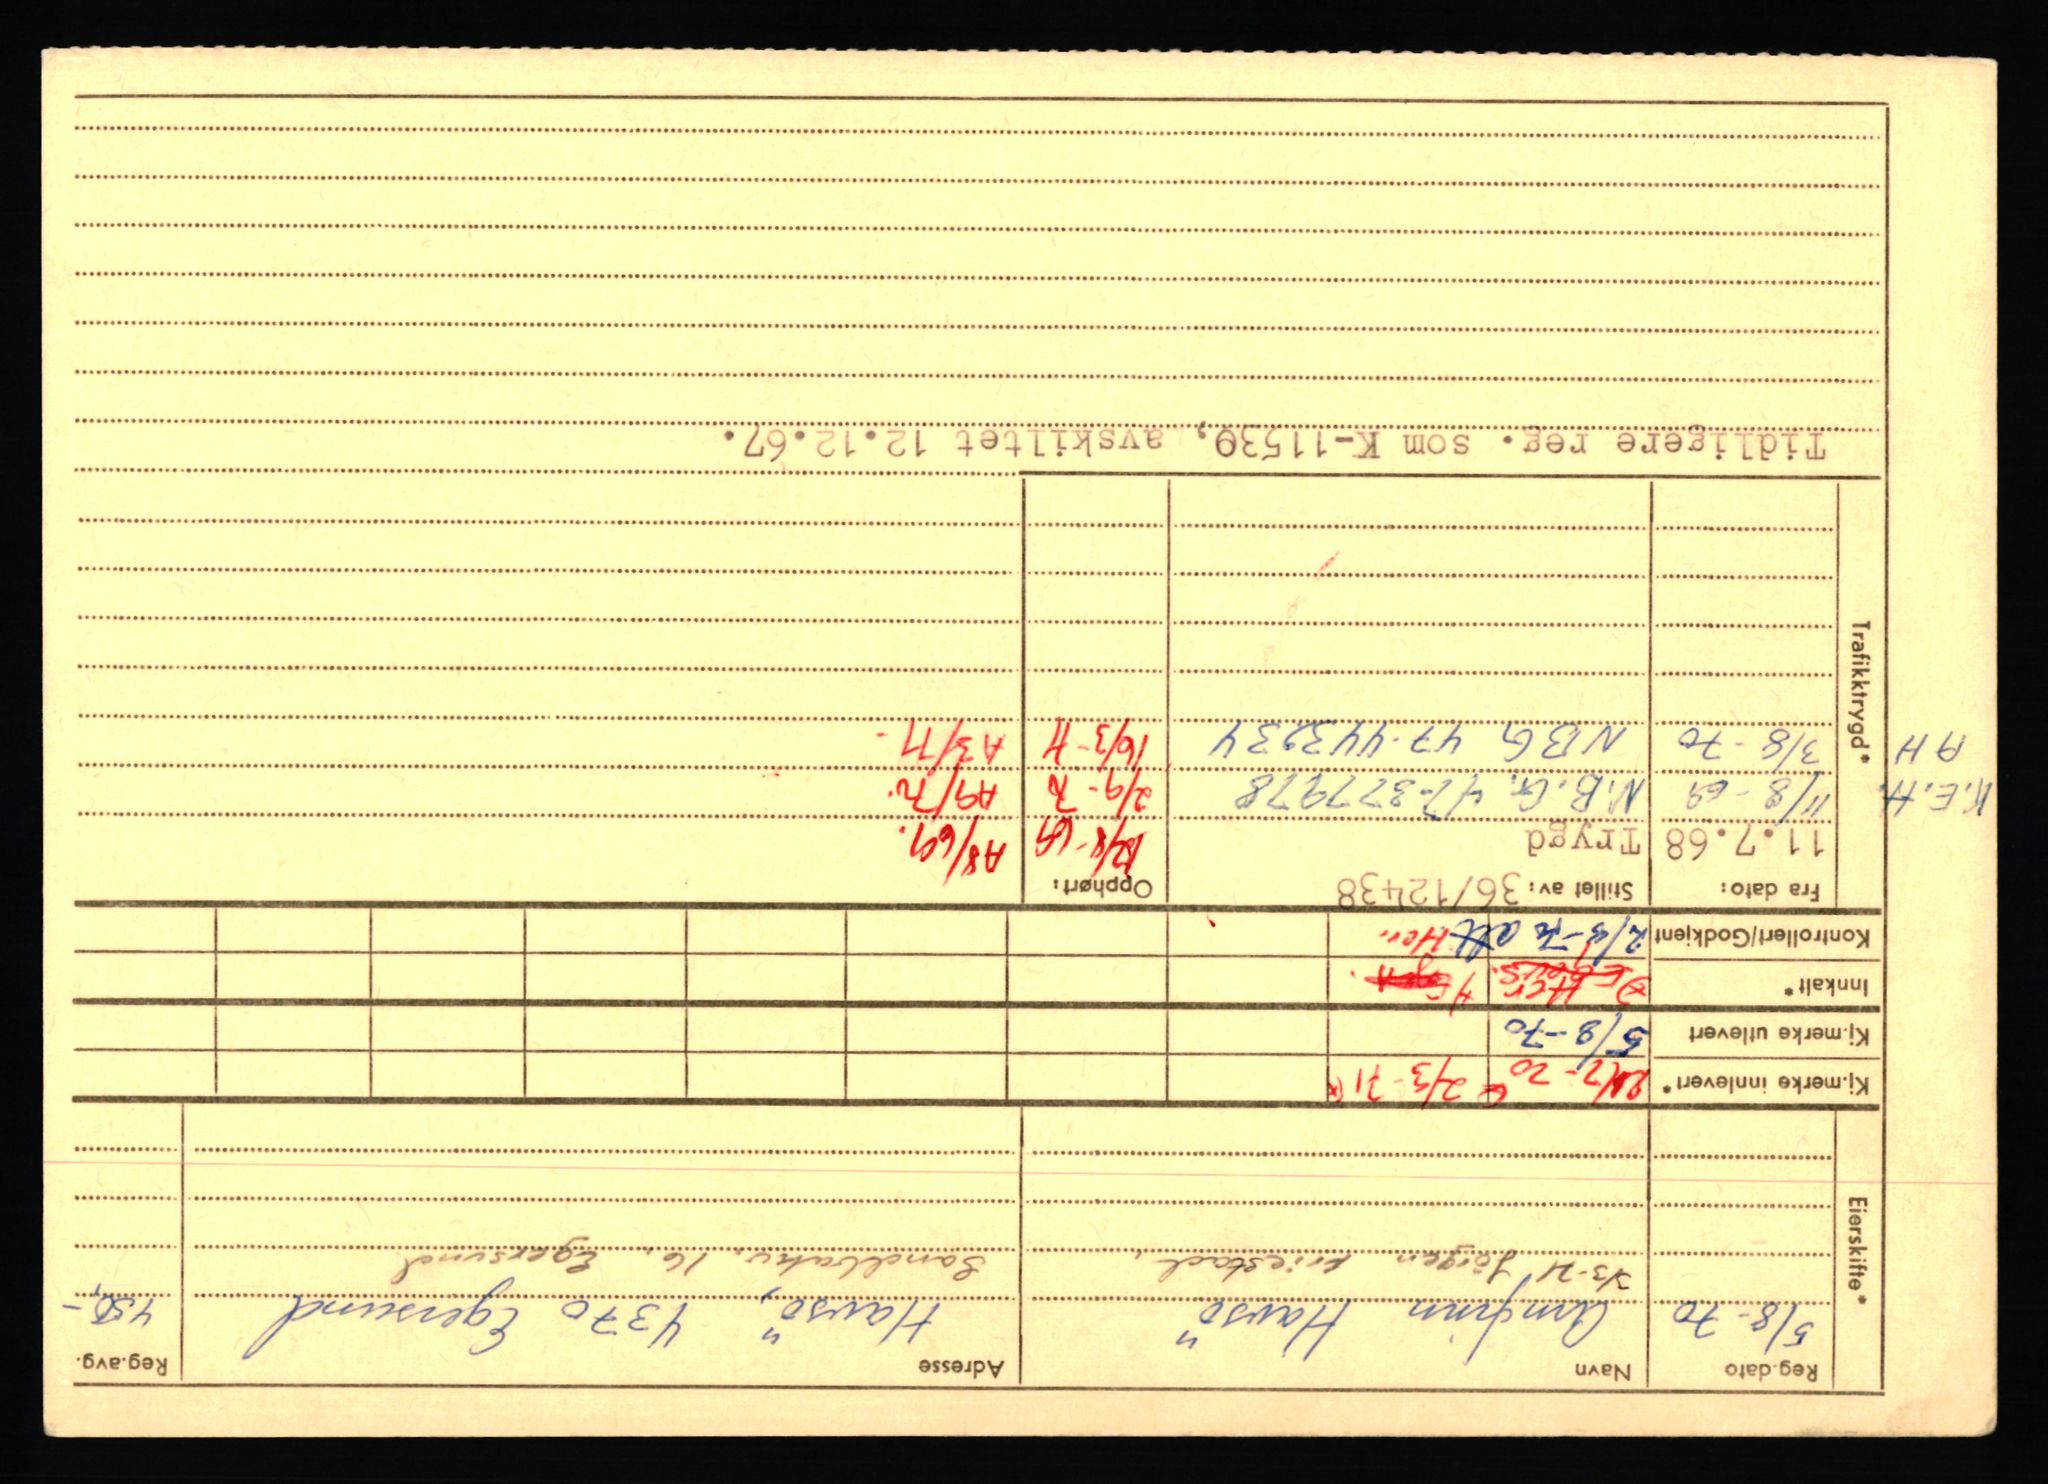 Eierskifte*
Reg.dato Navn Adresse Reg.avg.
5/8-70 Arnfinn Havsö Havsö, 4370 Egersund 450,-
2/3-71 Jørgen Friestad, Sandbakv. 16, Egersund
Kj.merke innlevert* 21/7-70 2/3-71
Kj.merke utlevert 5/8-70
Innkalt*
Kontrollert/Godkjent
Trafikktrygd*
Fra dato: Stillet av: 36/12438 Opphørt:
11.7.68 Trygd 12/8-69 A8/69.
K.E.H. 11/8-69 N.B.G. 47-377978 2/9-70 A9/70.
AH 3/8-70 NBG 47-443934 16/3-71 A3/71-
Tidligere reg. som K-11530, avskiltet 12.12.67.